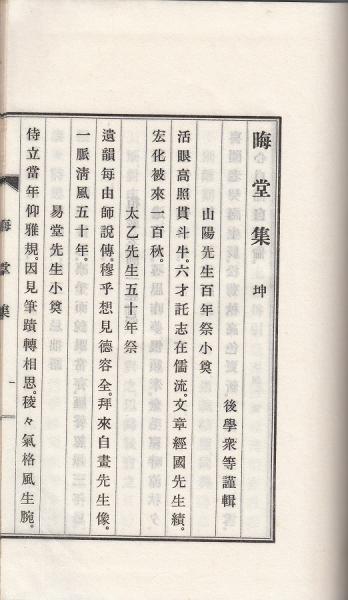 晦堂集 坤
後學衆等謹輯
山陽先生百年祭小奠
活眼高照貫斗牛。六才託志在儒流。文章經國先生績。
宏化被來一百秋。
太乙先生五十年祭
遺韻每由師說傳。穆乎想見德容全。拜來自畫先生像。
一脈清風五十年。
易堂先生小奠
侍立當年仰雅規。因見筆蹟轉相思。稜々氣格風生腕。
晦堂集
一